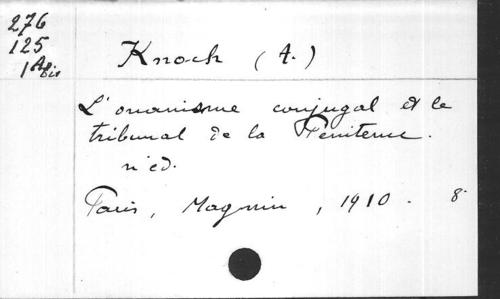 276
125
1 A bis
Knoch (A.)
L'onanisme conjugal et le
tribunal de la Pénitence.
n éd.
Paris, Magnin, 1910. 8°